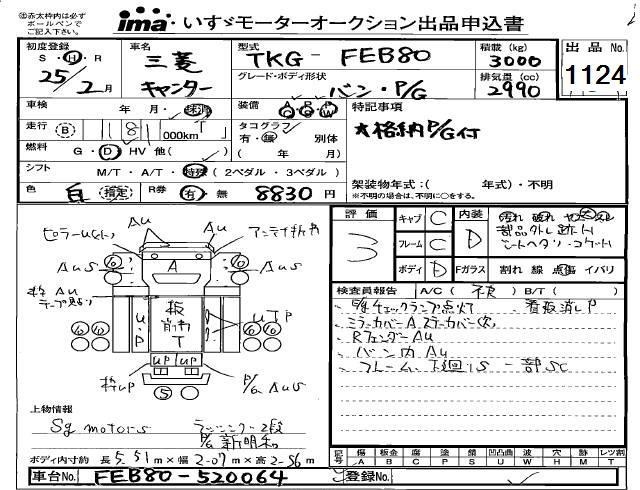 ㊟赤太枠内は必ず
ボールペンで
ご記入下さい
ima いすゞモーターオークション出品申込書
初度登録 S・H・R 25年 2月
車名 三菱 キャンター
型式 TKG-FEB80
グレード・ボディ形状 バン・P/G
積載 (kg) 3000
排気量 (cc) 2990
出品 No. 1124
車検 年 月・
装備
特記事項
★格納P/G付
走行 B 181 000km
タコグラフ 有・無 別体 ( 年 月)
燃料 G・D・HV 他( )
シフト M/T・A/T・特殊 (2ペダル・3ペダル)
架装物年式:( 年式)・不明
※不明の場合は、不明に○をする。
色 白 (指定) R券 有 無 8830円
評価 3
キャブ C
フレーム C
ボディ D
内装 D
Fガラス 割れ 線 点傷 イバリ
汚れ 破れ
部品外し跡
シートヘタリ・コゲ
検査員報告 A/C( ) B/T( )
チェックランプ点灯
ミラーカバーA ステーカバー欠
RフェンダーAu
バン内Au
フレーム、下廻りS 一部SC
Au Au
ピラーU
アンテナ
AuS AuS
A
枠Au
板
T
U・P
UTP
UP UP
枠UP
P/G AuS
5
上物情報
Sg motors
ラッシング2段
P/G 新明和
ボディ内寸約 長5-51m×幅2-07m×高2-56m
記号 傷A 板金B 腐C 塗P 錆S 凹凸曲U 波W 穴H 跡M レンズ割T
車台No. FEB80-520064
登録No.